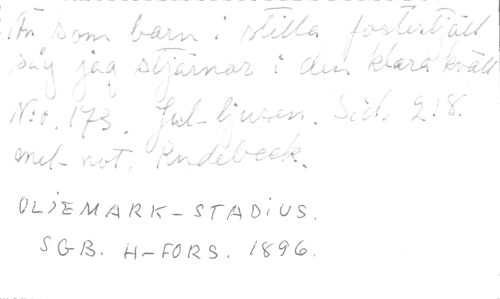 Än som barn i stilla fostertjäll
såg jag stjärnor i den klara kväll
N:o. 173. Jul-ljusen. Sid. 218.
mel-not. Rudebeck.
ULJEMARK-STADIUS.
SGB. H-FORS. 1896.